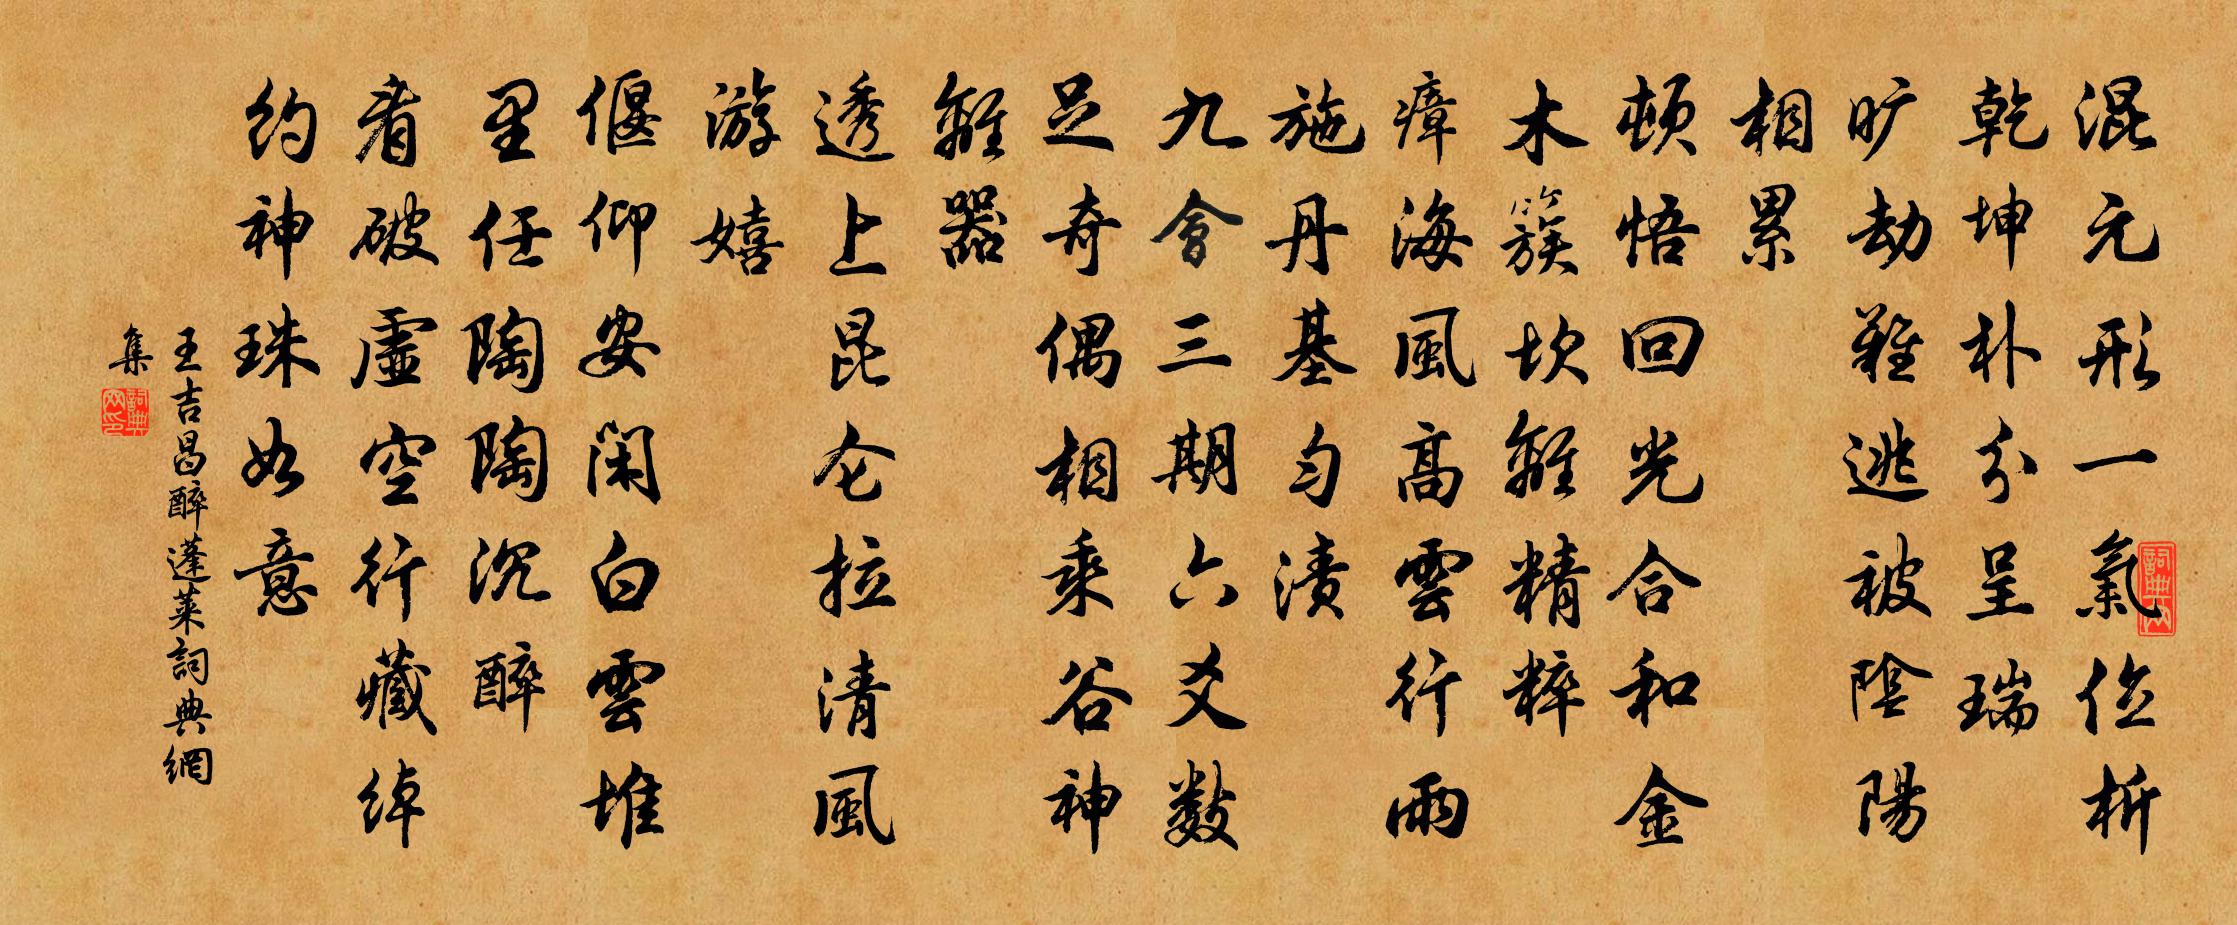 混元形一氣位析
乾坤朴分呈瑞
旷劫難逃被陰陽
相累
頓悟回光合和金
木簇坎離精粹
瘴海風高雲行雨
施丹基匀漬
九會三期六爻數
足奇偶相乘谷神
離器
透上昆仑拉清風
游嬉
偃仰安闲白雲堆
里任陶陶沉醉
看破虛空行藏綽
約神珠如意
王吉昌醉蓬莱詞典網
集
詞典網
詞典網印